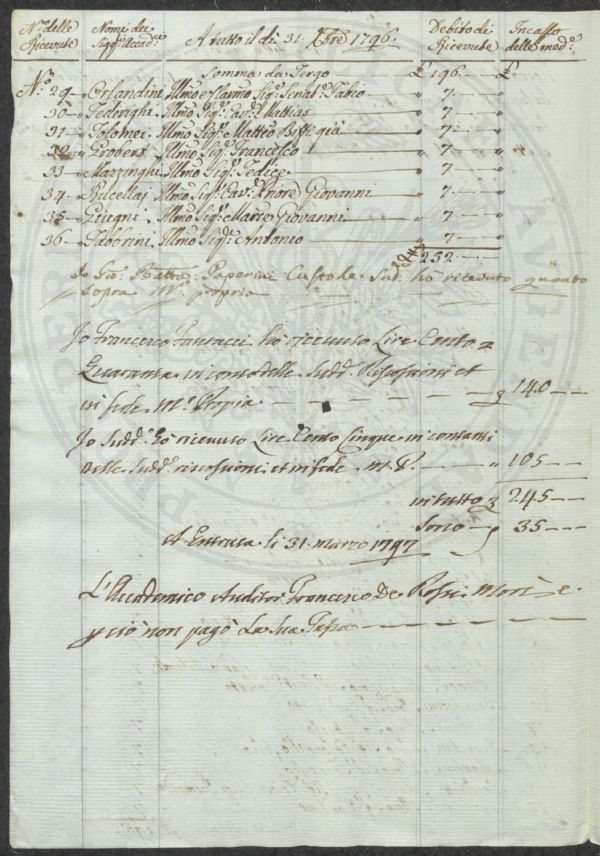 N.º delle Ricevute Nomi dei Sigg.ri Accad.ci A tutto il dì 31. Xbre 1796. Debito di Ricevute Incasso delle med.e
Somma da Tergo 196.
N.º 29 Orlandini Illmo e Clarmo Sig.r Senat.r Fabio 7.
30 Federighi. Illmo Sig.r Cav.r Mattias 7.
31 Tolomei. Illmo Sig.r Matteo 7.
32 Illmo Sig.r Francesco 7.
33 Mazzinghi Illmo Sig.r Felice 7.
34 Rucellaj Illmo Sig.r Cav.r Giovanni 7.
35 Giugni. Illmo Sig.r Marce Giovanni 7.
36 Fabbrini. Illmo Sig.r Antonio 7.
252.
Io Gio: Batta Paperini Custode Sud. ho ricevuto quanto
sopra M.º propria
Io Francesco ho ricevuto Lire Cento
Quaranta in conto delle Sudd.e Riscossioni et
in fede M.º Propia 140
Io Sudd.º hò ricevuto Lire Cento Cinque in contanti
delle Sudd.e riscossioni et in fede M. P. 105
in tutto 245
35
A Entrata li 31 marzo 1797
L'Accademico Auditor Francesco De Rossi Morì e
p ciò non pagò La Sua Tassa